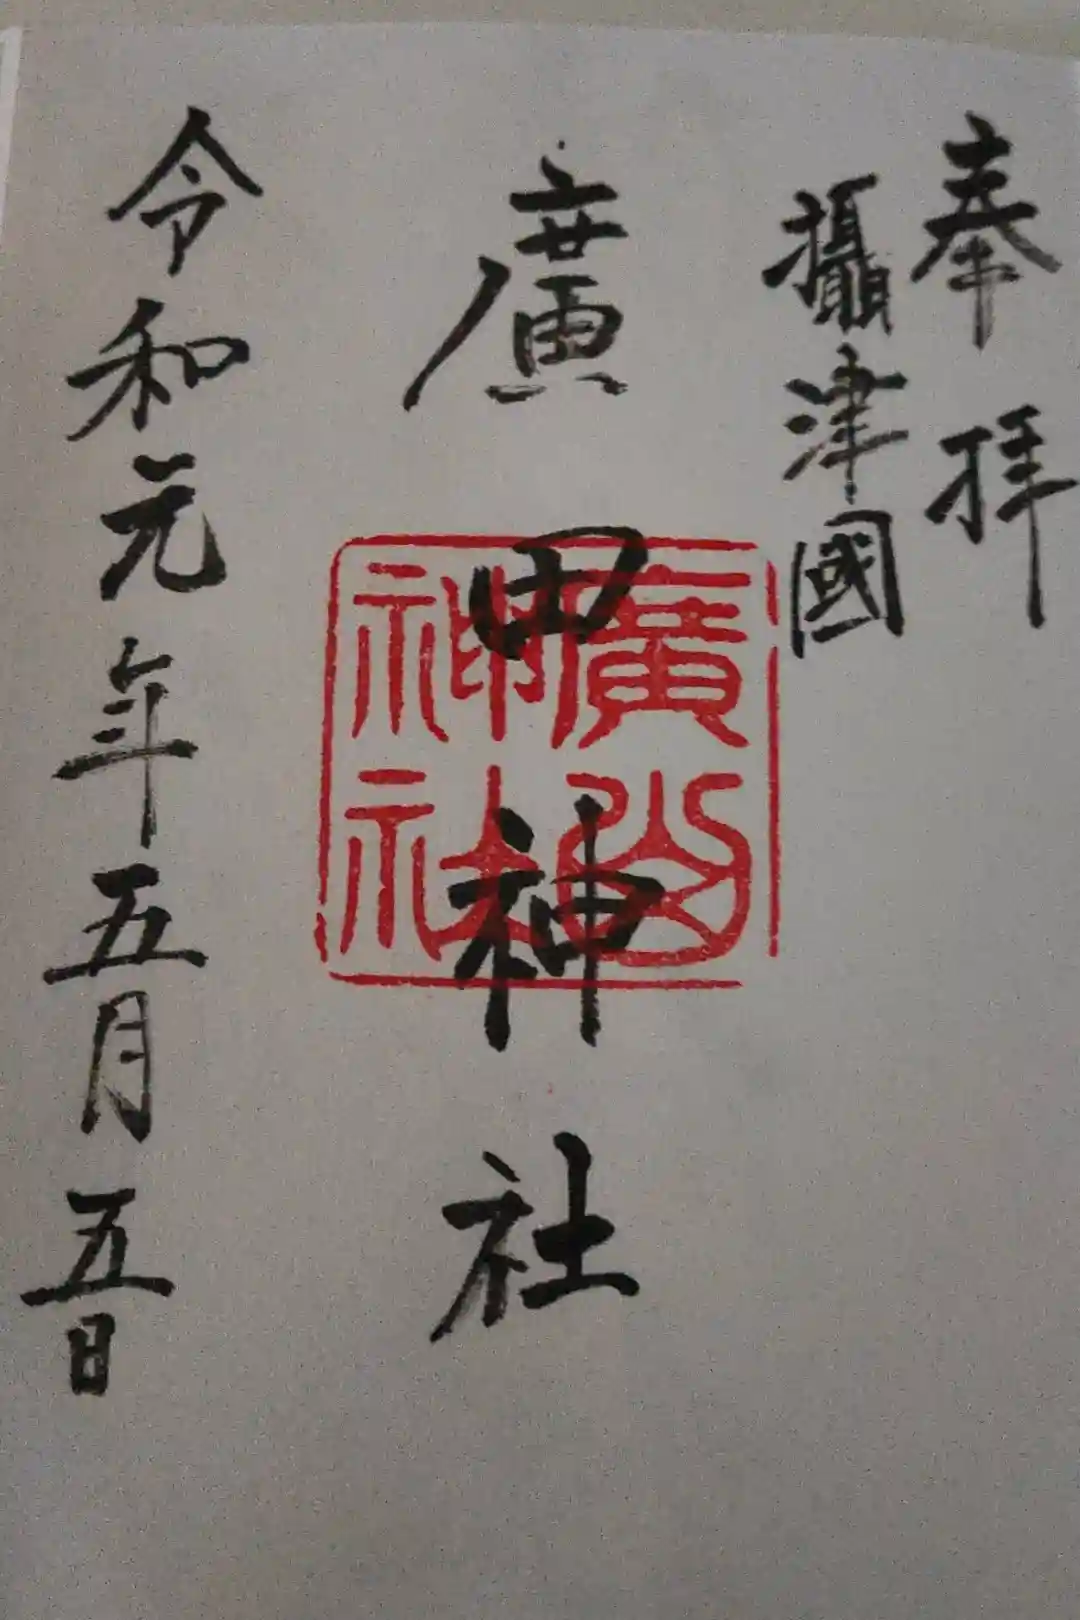 奉拝
攝津國
廣田神社
令和元年五月五日